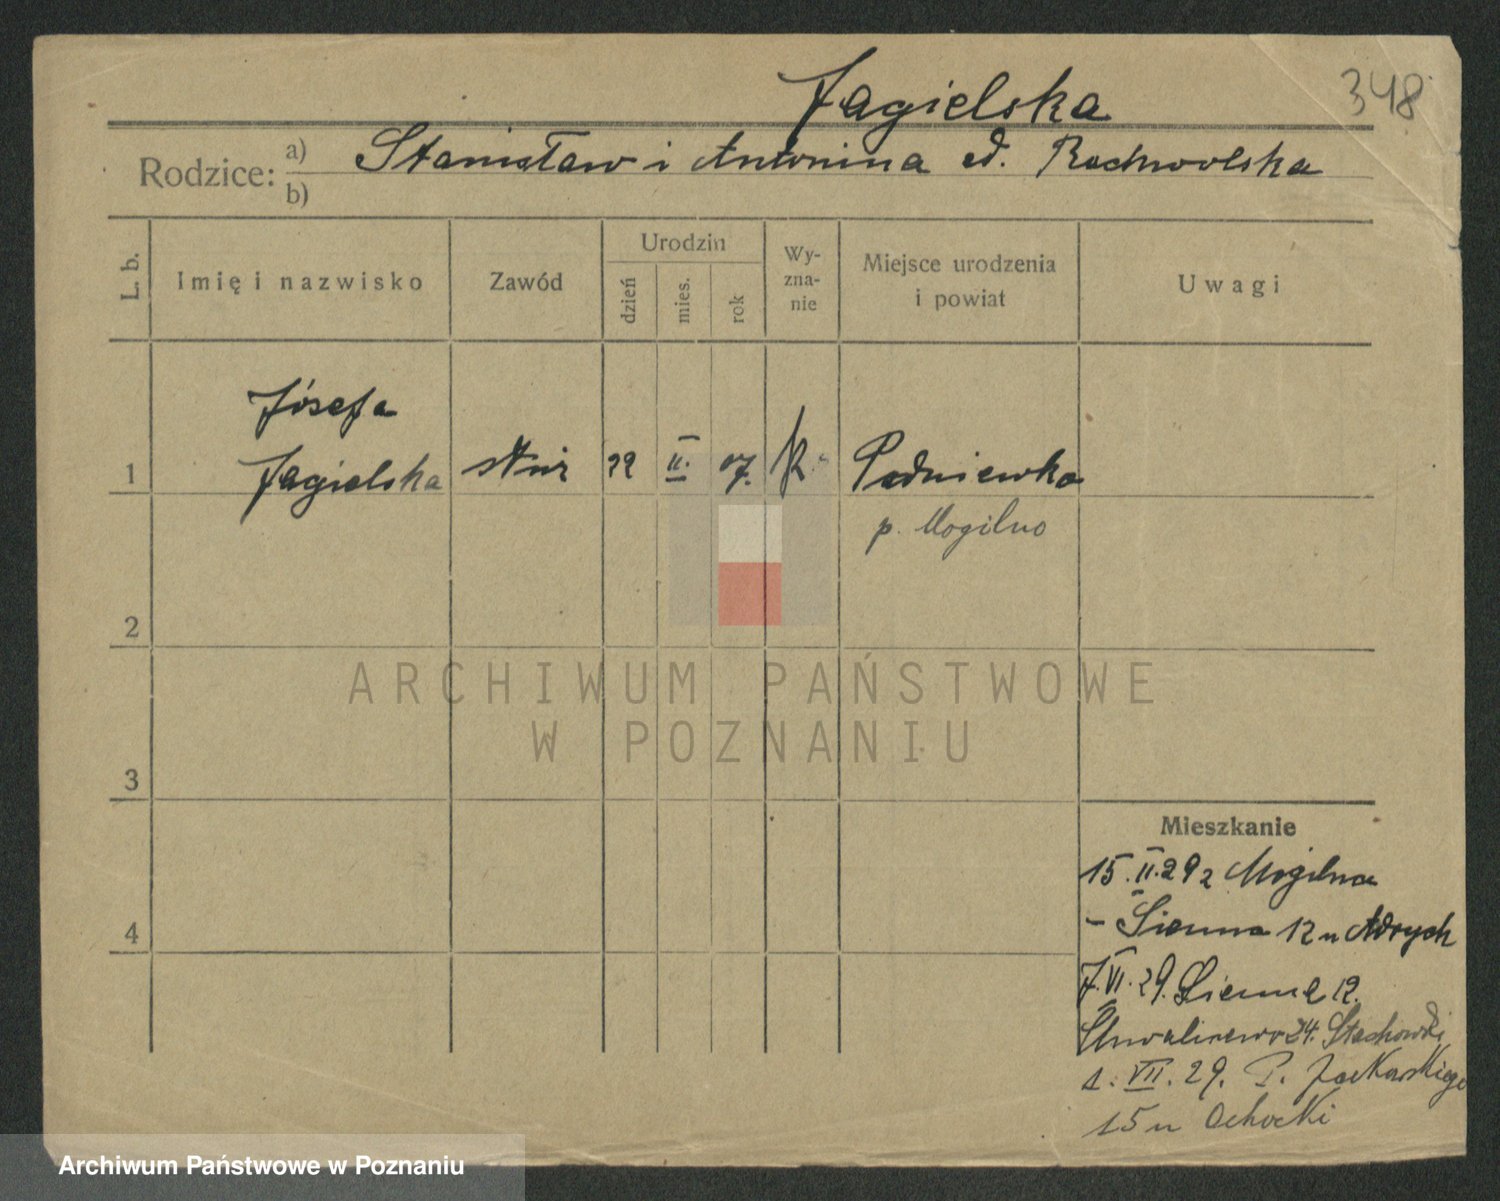 Jagielska
348
Rodzice: a) Stanisław i Antonina
b)
L. b.
Imię i nazwisko
Zawód
Urodzin
dzień
mies.
rok
Wy-
zna-
nie
Miejsce urodzenia
i powiat
Uwagi
Józefa
1 Jagielska służ 22 II. 07. k. Padniewko
p. Mogilno
2
ARCHIWUM PAŃSTWOWE
W POZNANIU
3
Mieszkanie
15.II.29 z Mogilna
4
- Sienna 12 u
7.VI.29. Sienna 12.
24.
1. VII. 29. P.
15 u Ochocki
Archiwum Państwowe w Poznaniu